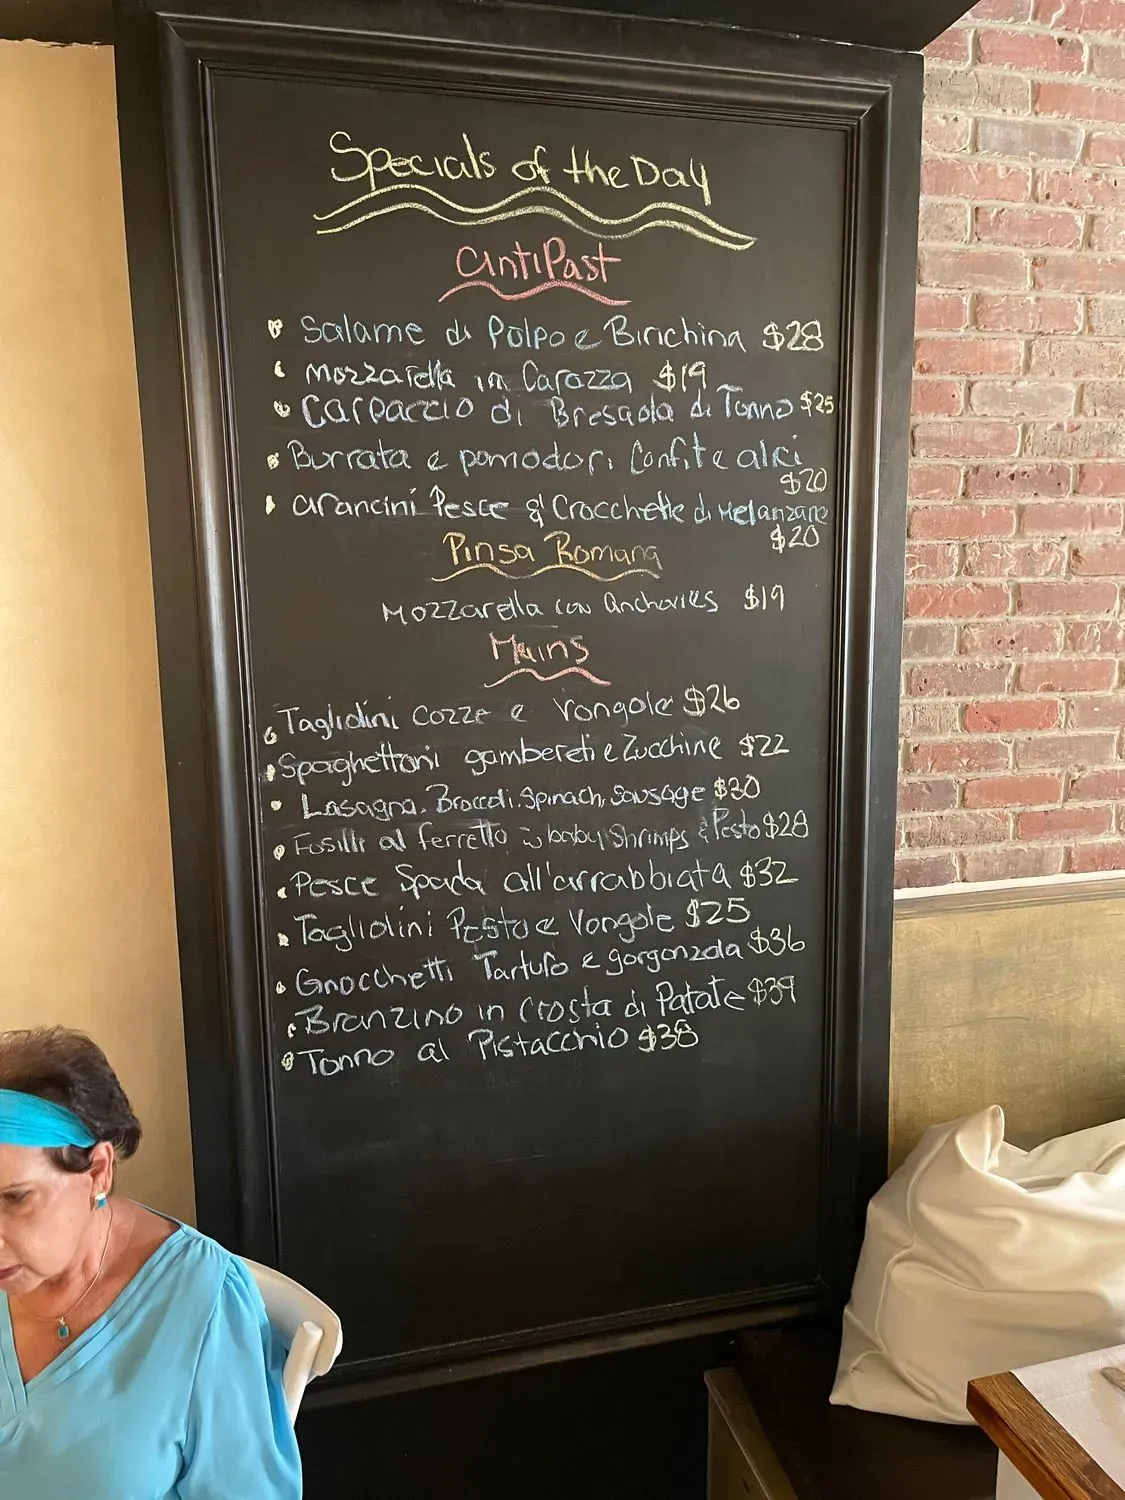 Specials of the Day
antiPast
Salame di Polpo e Birichina $28
Mozzarella in Carozza $19
Carpaccio di Bresaola di Tonno $25
Burrata e pomodori Confit e alici
$20
arancini Pesce & Crocchette di Melanzane
$20
Pinsa Romana
Mozzarella con anchovies $19
Mains
Tagliolini Cozze e Vongole $26
Spaghettoni gambereti e Zucchine $22
Lasagna. Broccoli. Spinach, Sausage $30
Fusilli al ferretto w baby Shrimps & Pesto $28
Pesce Spada all'arrabbiata $32
Tagliolini Pesto e Vongole $25
Gnocchetti Tartufo e gorgonzola $36
Branzino in Crosta di Patate $39
Tonno al Pistacchio $38